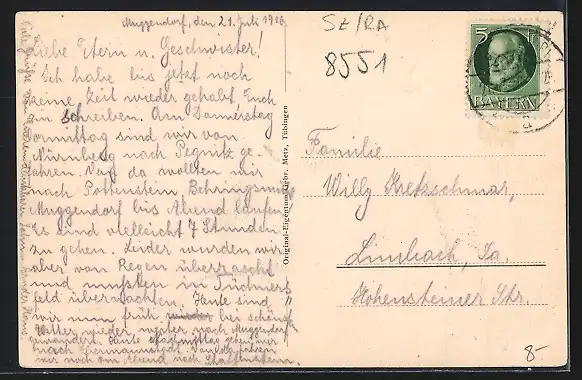 Muggendorf, den 21. Juli 1916
Liebe Eltern u. Geschwister!
Ich habe bis jetzt noch
keine Zeit wieder gehabt Euch
zu schreiben. Am Donnerstag
Vormittag sind wir von
Nürnberg nach Pegnitz ge-
fahren. Na, da wollten wir
nach Pottenstein, Behringsmühle
Muggendorf bis Abend laufen
Es sind vielleicht 7 Stunden
zu gehen. Leider wurden wir
aber vom Regen überrascht
und mußten in Tüchers-
feld übernachten. Heute sind
wir nun früh bei schönem
Wetter wieder weiter nach Muggendorf
gewandert. Heute Nachmittag gehen wir
nach
wir noch am Abend nach
SZ/RA
8551
5
BAYERN
Original-Eigentum Gebr. Metz, Tübingen
Familie
Willy Kretzschmar,
Limbach, Sa.
Hohensteiner Str.
8-